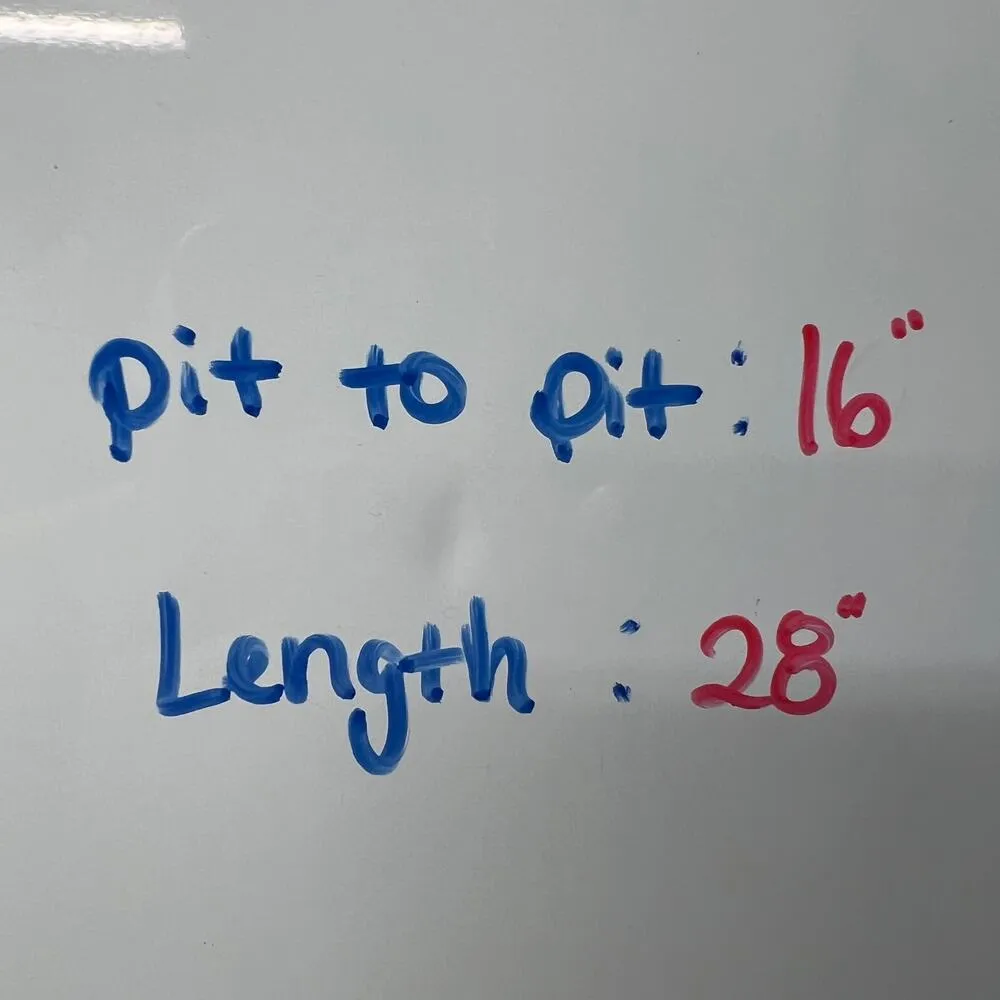 pit to pit : 16"
Length : 28"